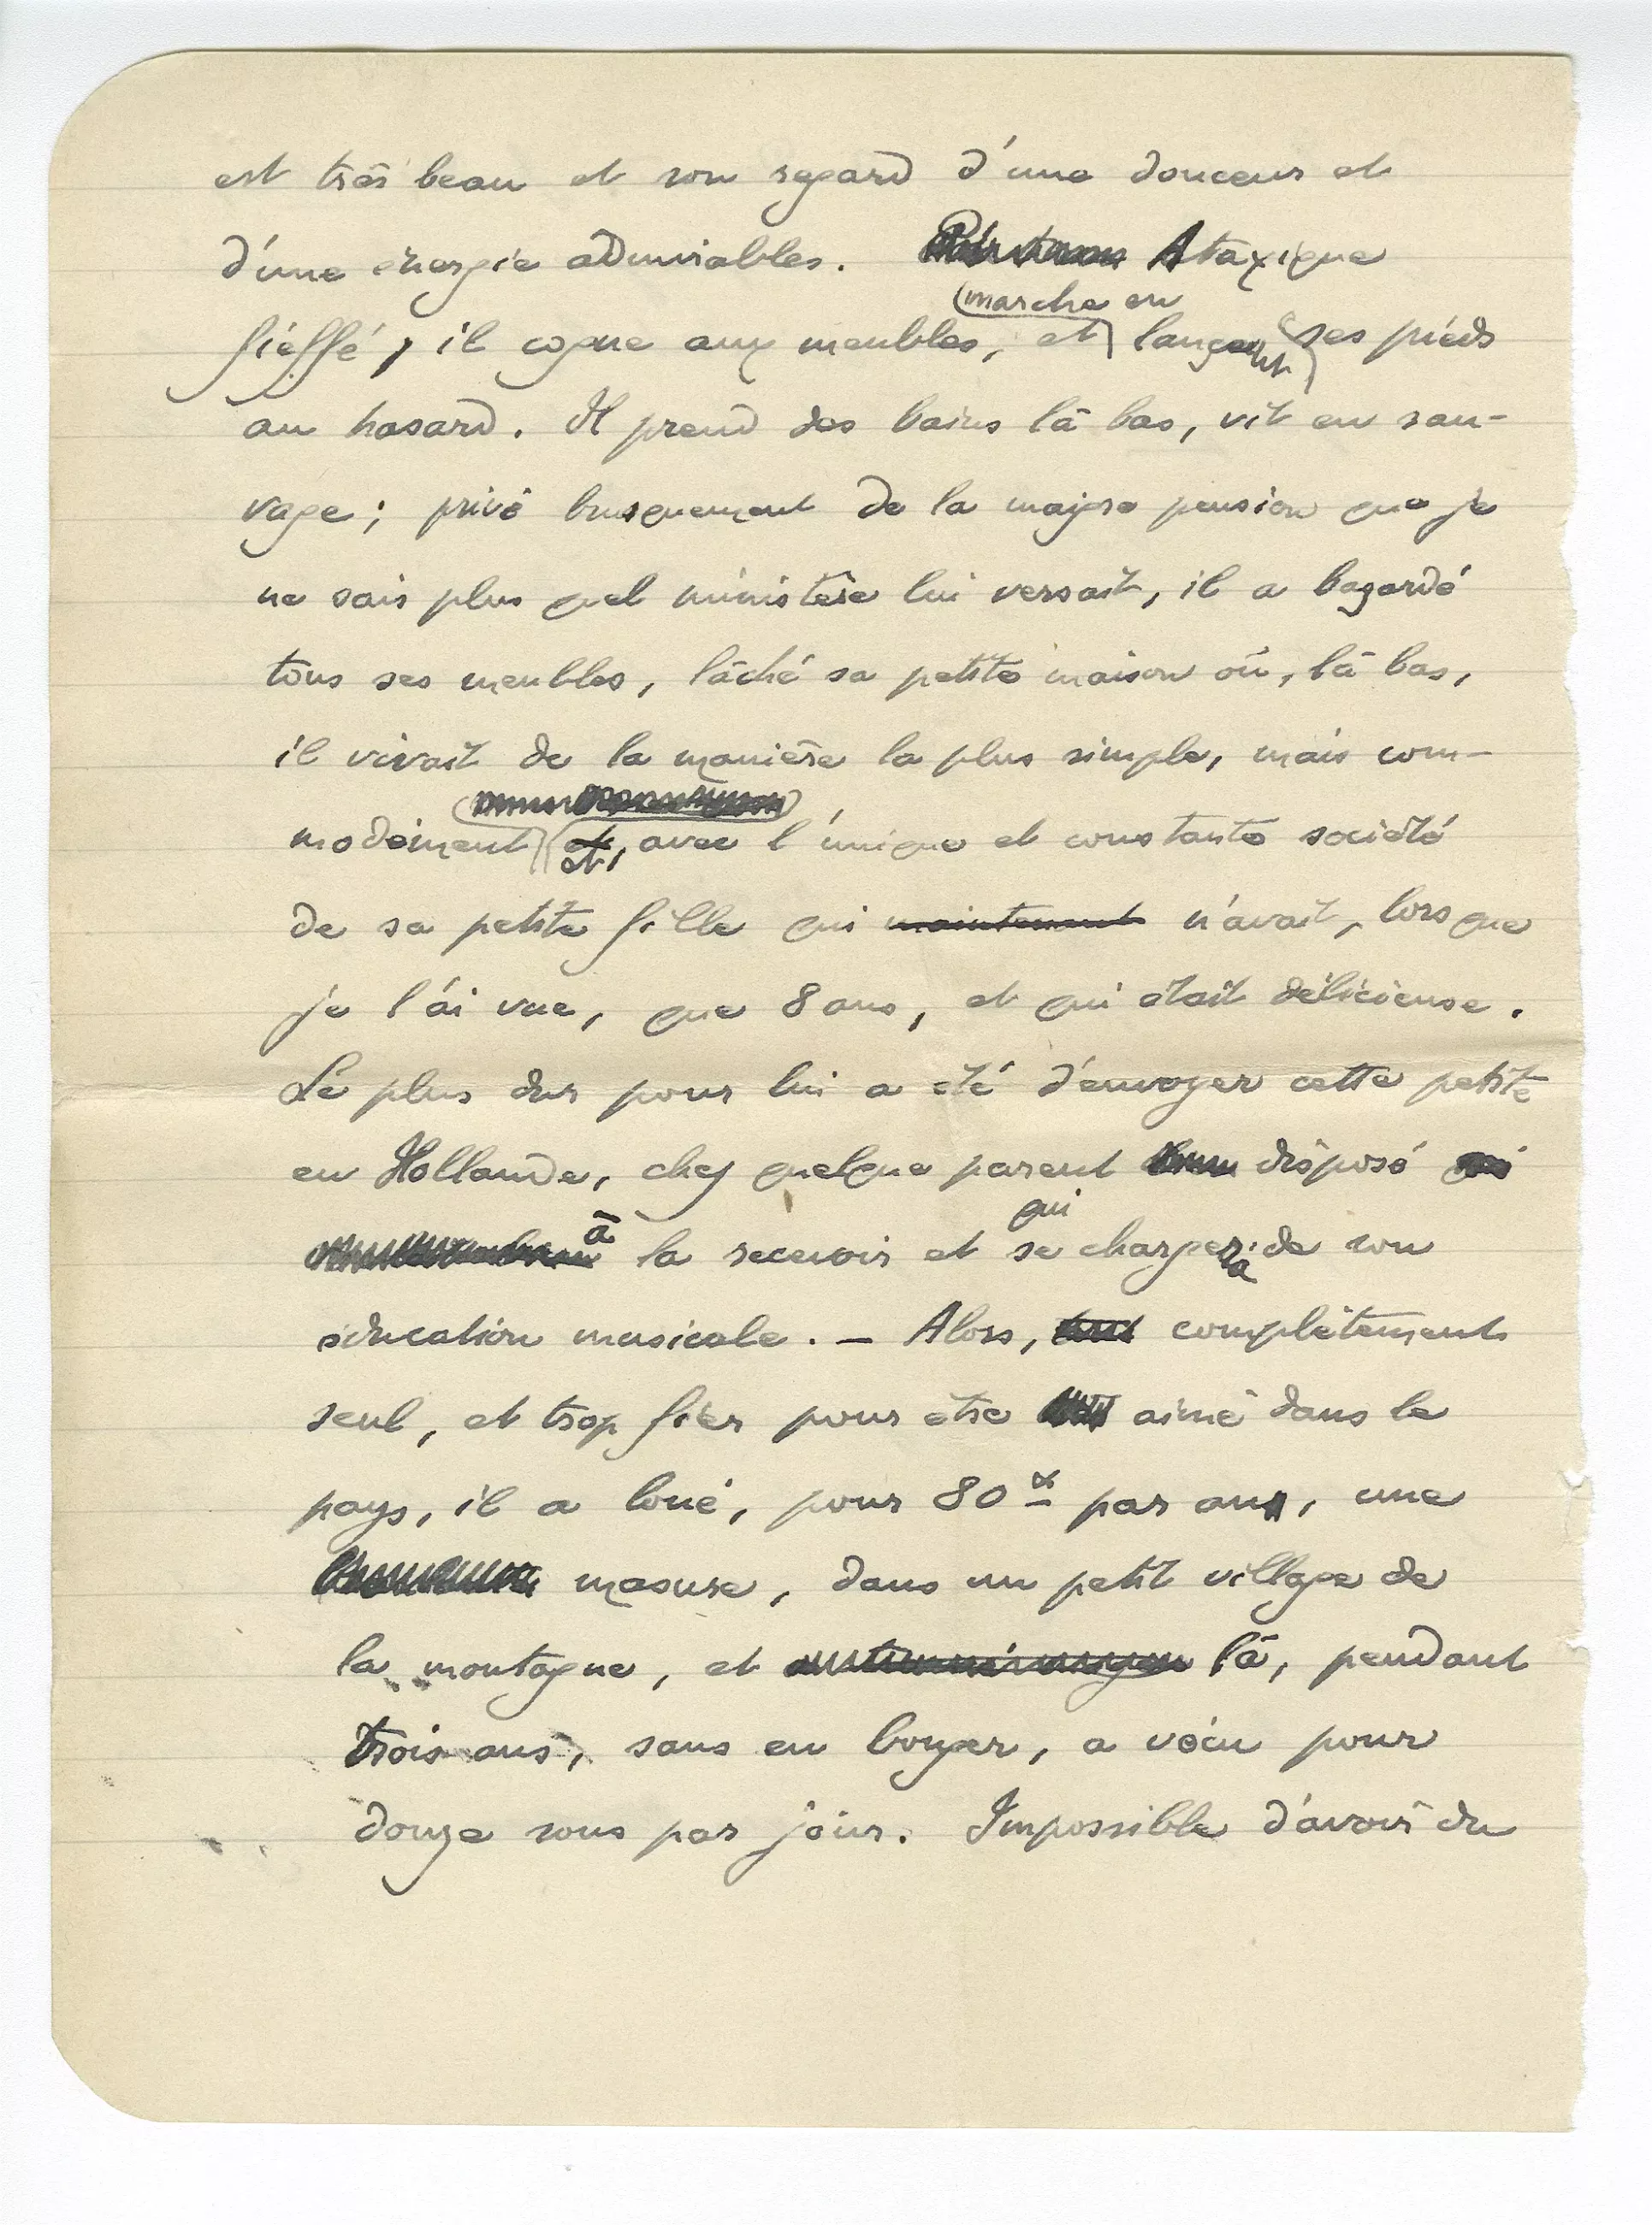 est très beau et son regard d'une douceur et
d'une énergie admirables. Ataxique
marche en
fieffé, il cogne aux meubles, et lançant ses pieds
au hasard. Il prend des bains là bas, vit en sau-
vage ; privé brusquement de la maigre pension que je
ne sais plus quel ministère lui versait, il a bazardé
tous ses meubles, lâché sa petite maison où, là bas,
il vivait de la manière la plus simple, mais com-
modément et, avec l'unique et constante société
de sa petite fille qui maintenant n'avait, lorsque
je l'ai vue, que 8 ans, et qui était délicieuse.
Le plus dur pour lui a été d'envoyer cette petite
en Hollande, chez quelque parent disposé
qui
à la recevoir et se chargera de son
éducation musicale. — Alors, complètement
seul, et trop fier pour être aimé dans le
pays, il a loué, pour 80 par an, une
masure, dans un petit village de
la montagne, et là, pendant
trois ans, sans en bouger, a vécu pour
douze sous par jour. Impossible d'avoir du